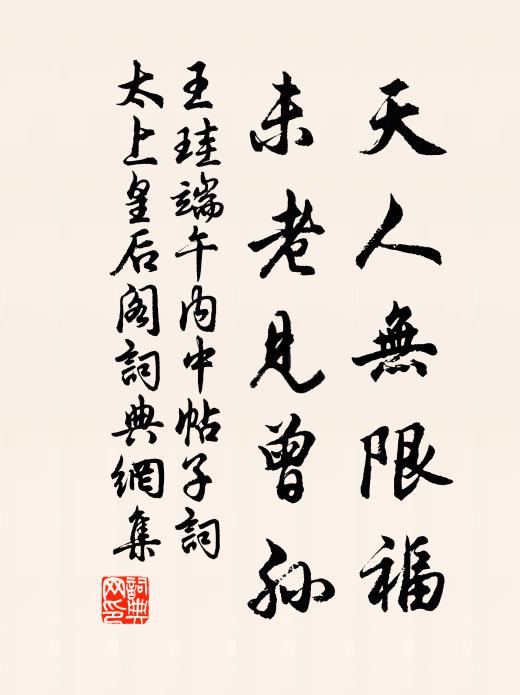 天人無限福
未老見曾孫
王珪端午内中帖子詞
太上皇后阁詞典網集
詞典網印